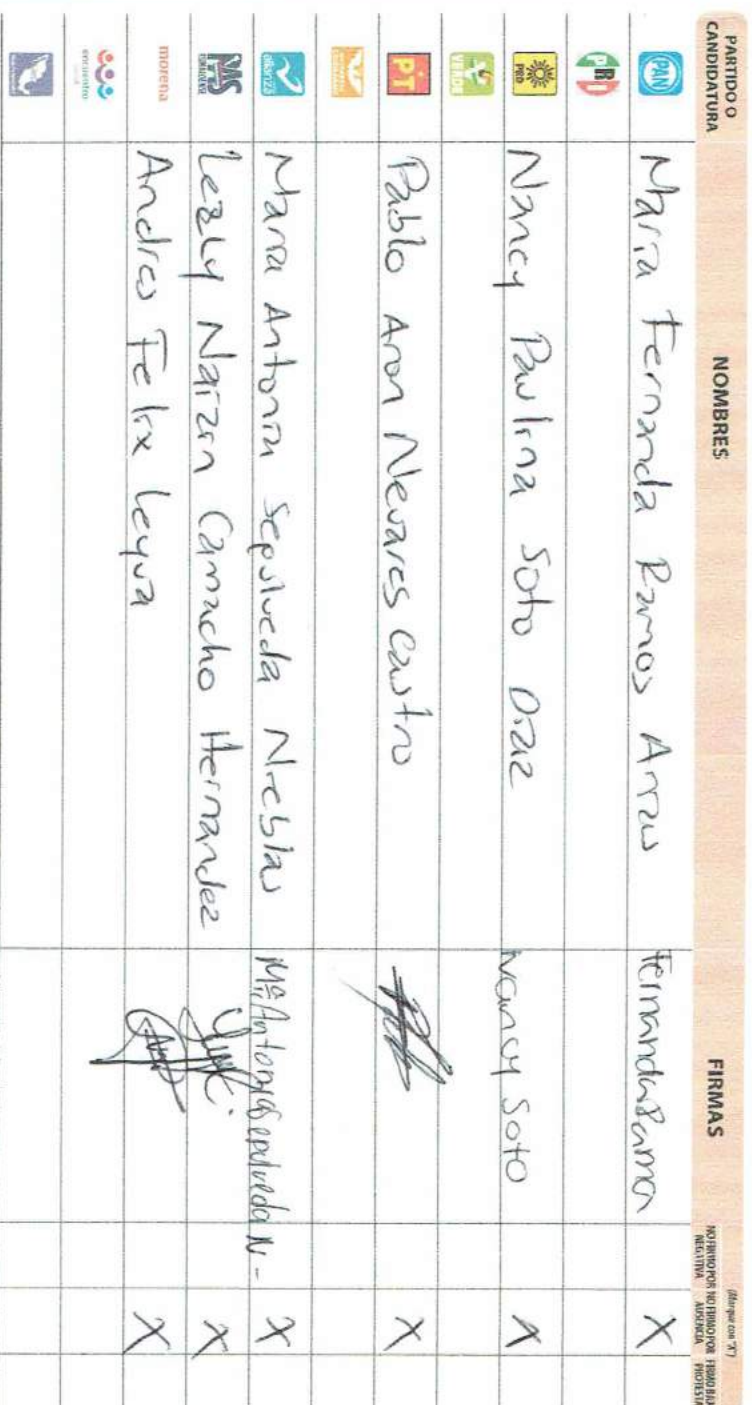 PARTIDO O
CANDIDATURA
NOMBRES
FIRMAS
(Marque con "X")
NO FIRMO POR
NEGATIVA
NO FIRMO POR
AUSENCIA
FIRMO BAJO
PROTESTA
PAN
Maria Fernanda Ramos Arzu
Fernanda Ramos
X
PRI
PRD
Nancy Paulina Soto Diaz
Nancy Soto
X
VERDE
PT
Pablo Aron Nevares Castro
X
alianza
Maria Antonia Sepulveda Nieblas
Mª Antonia Sepulveda N-
X
PAS
Lezly Naizin Camacho Hernandez
X
morena
Andres Felix Leyva
X
encuentro
social